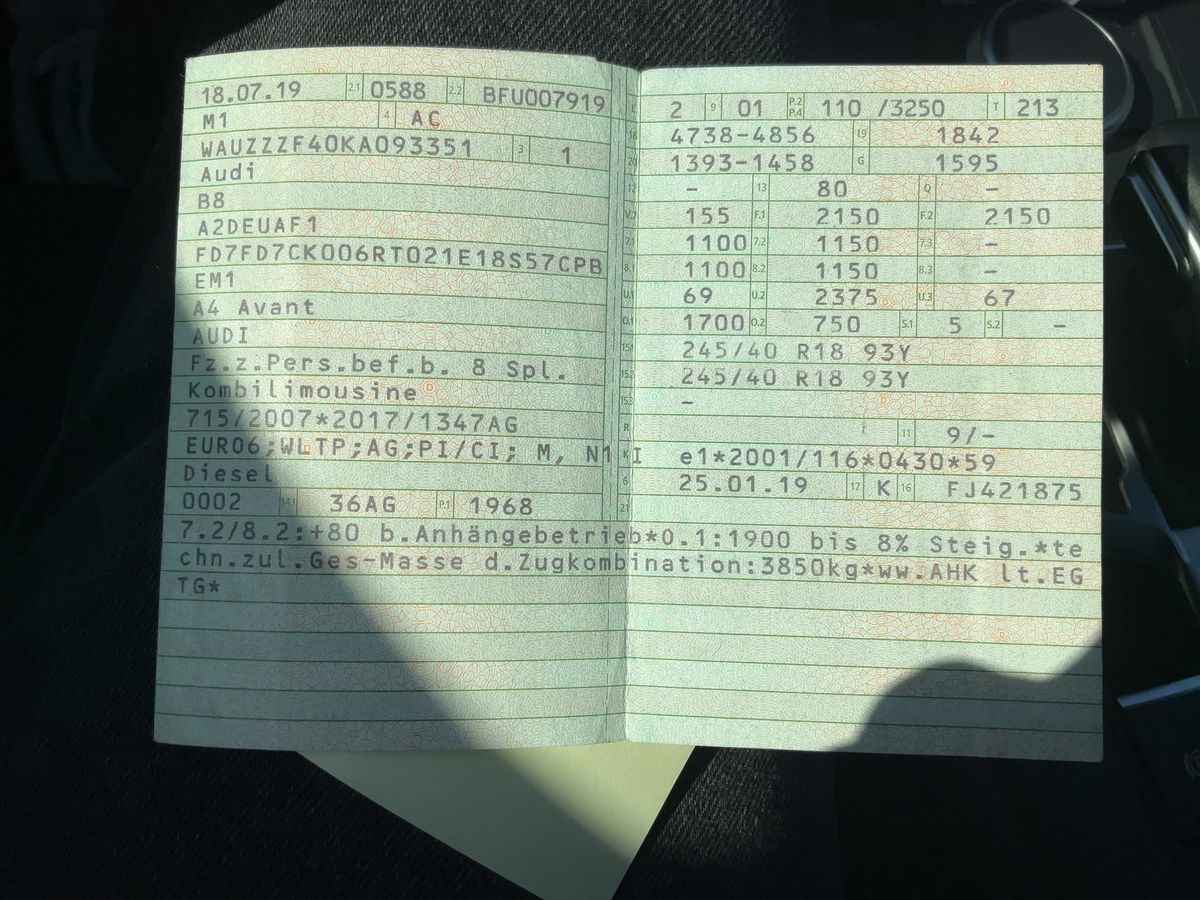 18.07.19 2.1 0588 2.2 BFU007919
M1 4 AC
WAUZZZF40KA093351 3 1
Audi
B8
A2DEUAF1
FD7FD7CK006RT021E18S57CPB
EM1
A4 Avant
AUDI
Fz.z.Pers.bef.b. 8 Spl.
Kombilimousine
715/2007*2017/1347AG
EURO6;WLTP;AG;PI/CI; M, N1 I
Diesel
0002 14.1 36AG P.1 1968
L 2 9 01 P.2 P.4 110 /3250 T 213
18 4738-4856 19 1842
20 1393-1458 G 1595
12 - 13 80 Q -
V.7 155 F.1 2150 F.2 2150
7.1 1100 7.2 1150 7.3 -
8.1 1100 8.2 1150 8.3 -
U.1 69 U.2 2375 U.3 67
O.1 1700 O.2 750 S.1 5 S.2 -
15.1 245/40 R18 93Y
15.2 245/40 R18 93Y
15.3 -
R 11 9/-
K e1*2001/116*0430*59
6 25.01.19 17 K 16 FJ421875
21
7.2/8.2:+80 b.Anhängebetrieb*0.1:1900 bis 8% Steig.*te
chn.zul.Ges-Masse d.Zugkombination:3850kg*ww.AHK lt.EG
TG*